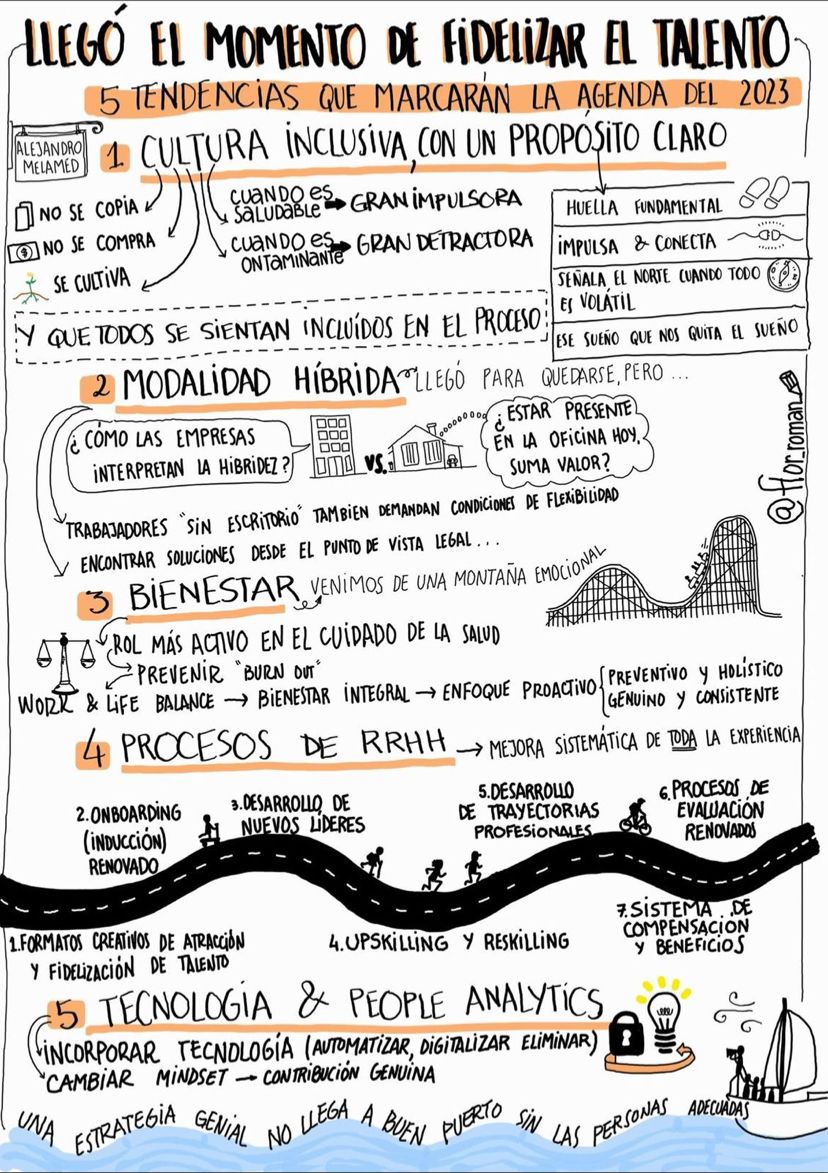 LLEGÓ EL MOMENTO DE FIDELIZAR EL TALENTO
5 TENDENCIAS QUE MARCARÁN LA AGENDA DEL 2023
ALEJANDRO
MELAMED
1 CULTURA INCLUSIVA, CON UN PROPÓSITO CLARO
NO SE COPIA
NO SE COMPRA
SE CULTIVA
CUANDO ES
SALUDABLE → GRAN IMPULSORA
CUANDO ES
ONTAMINANTE → GRAN DETRACTORA
HUELLA FUNDAMENTAL
IMPULSA & CONECTA
SEÑALA EL NORTE CUANDO TODO
ES VOLÁTIL
ESE SUEÑO QUE NOS QUITA EL SUEÑO
Y QUE TODOS SE SIENTAN INCLUÍDOS EN EL PROCESO
2 MODALIDAD HÍBRIDA LLEGÓ PARA QUEDARSE, PERO ...
¿CÓMO LAS EMPRESAS
INTERPRETAN LA HIBRIDEZ?
VS.
¿ESTAR PRESENTE
EN LA OFICINA HOY,
SUMA VALOR?
@flor_roman
TRABAJADORES "SIN ESCRITORIO" TAMBIEN DEMANDAN CONDICIONES DE FLEXIBILIDAD
ENCONTRAR SOLUCIONES DESDE EL PUNTO DE VISTA LEGAL...
3 BIENESTAR VENIMOS DE UNA MONTAÑA EMOCIONAL
ROL MÁS ACTIVO EN EL CUIDADO DE LA SALUD
PREVENIR "BURN OUT"
WORK & LIFE BALANCE → BIENESTAR INTEGRAL → ENFOQUE PROACTIVO
PREVENTIVO Y HOLÍSTICO
GENUINO Y CONSISTENTE
4 PROCESOS DE RRHH → MEJORA SISTEMÁTICA DE TODA LA EXPERIENCIA
1. FORMATOS CREATIVOS DE ATRACCIÓN
Y FIDELIZACIÓN DE TALENTO
2. ONBOARDING
(INDUCCIÓN)
RENOVADO
3. DESARROLLO DE
NUEVOS LÍDERES
4. UPSKILLING Y RESKILLING
5. DESARROLLO
DE TRAYECTORIAS
PROFESIONALES
6. PROCESOS DE
EVALUACIÓN
RENOVADOS
7. SISTEMA DE
COMPENSACIÓN
Y BENEFICIOS
5 TECNOLOGÍA & PEOPLE ANALYTICS
INCORPORAR TECNOLOGÍA (AUTOMATIZAR, DIGITALIZAR ELIMINAR)
CAMBIAR MINDSET → CONTRIBUCIÓN GENUINA
UNA ESTRATEGIA GENIAL NO LLEGA A BUEN PUERTO SIN LAS PERSONAS ADECUADAS